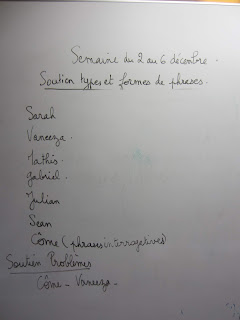 Semaine du 2 au 6 décembre.
Soutien types et formes de phrases.
Sarah
Vaneeza.
Mathis
Gabriel.
Julian
Sean
Côme (phrases interrogatives)
Soutien Problèmes
Côme - Vaneeza -